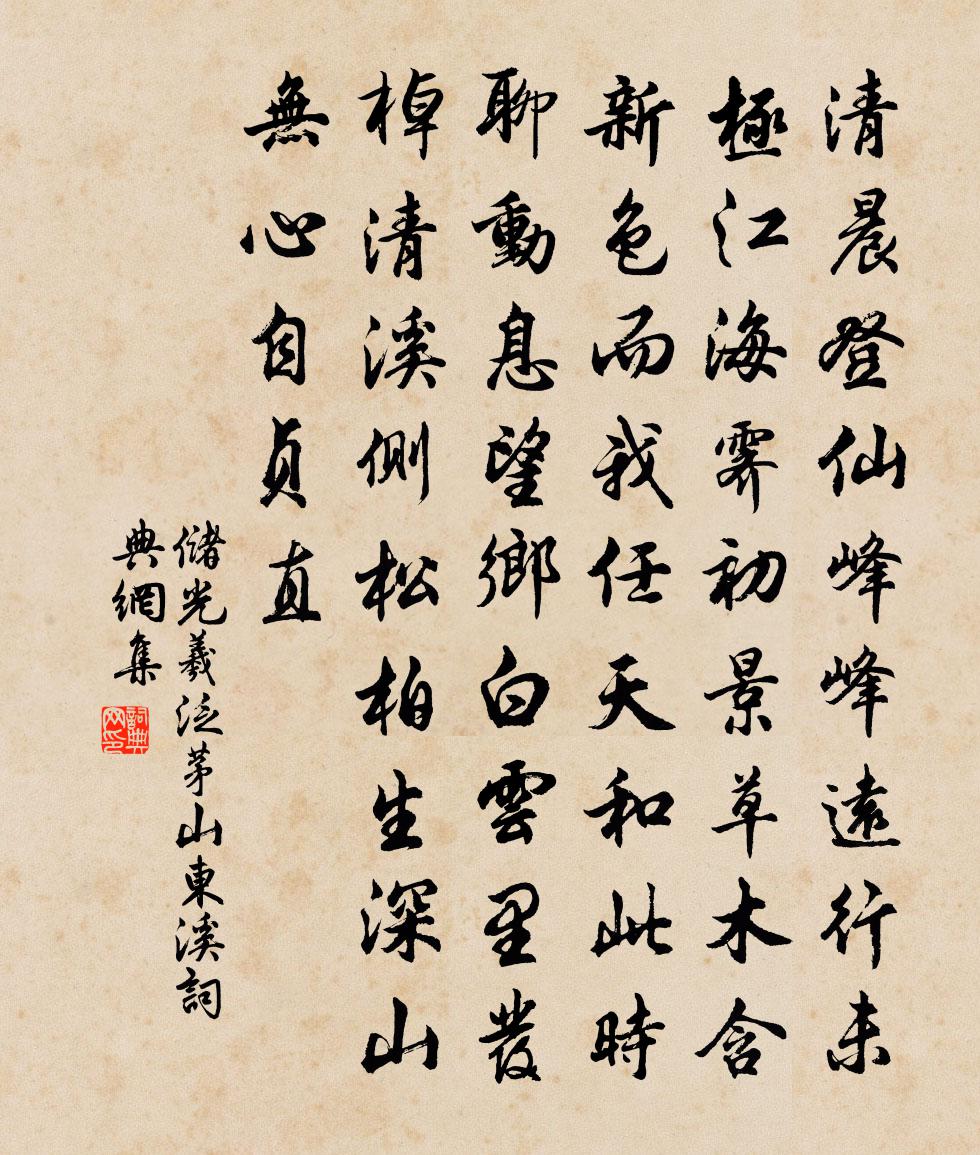 清晨登仙峰峰遠行未
極江海霽初景草木含
新色而我任天和此時
聊動息望鄉白雲里發
棹清溪側松柏生深山
無心自貞直
儲光羲泛茅山東溪詞
典網集
詞典網印